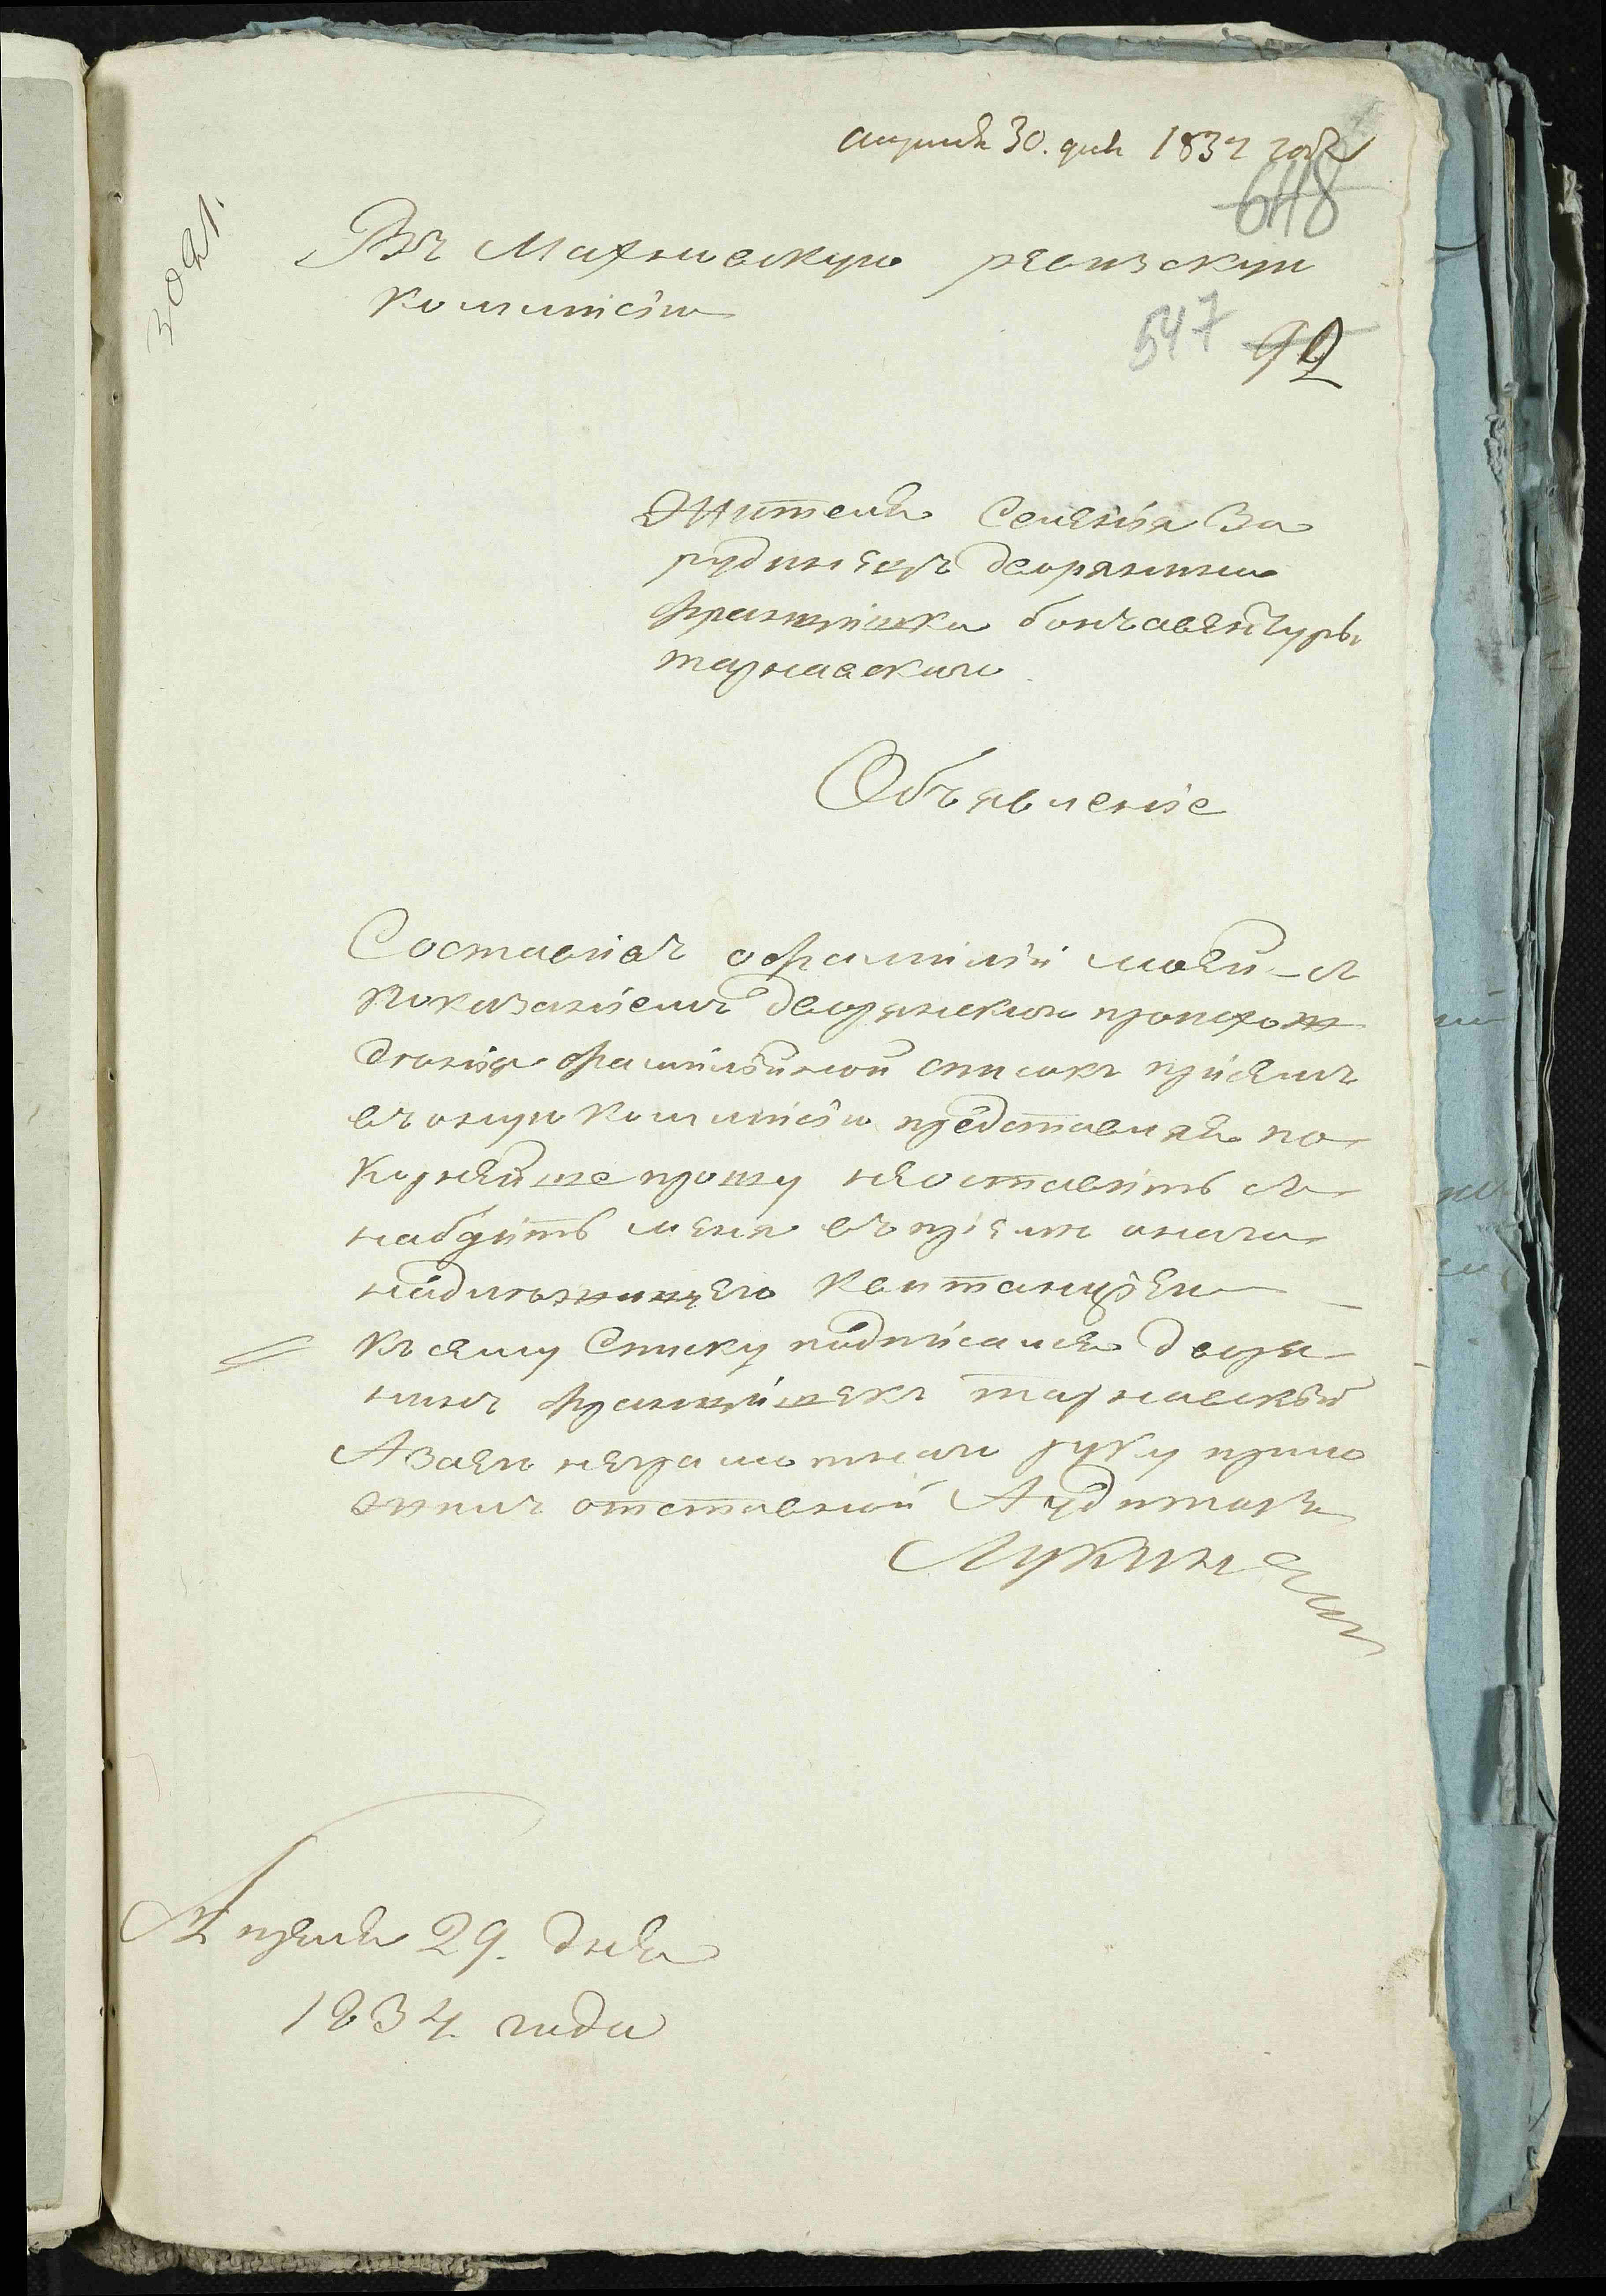 апреля 30. дня 1834 года
618
3021.
Въ Махновскую ревизскую
комиисїю
547 92
Жителя Селенїя За
рудинецъ дворянина
францїшка бонавентуры
тарнавского
Объявленїе
Составивъ офамилїи моей с
показанїемъ дворянского происхож
денїя фамилїйной списокъ при семъ
въ оную комиисїю представляя по
корнейше прошу неоставить с
набдить меня въ прїеме оного
надлежащею квитанцїею
Къ сему Списку подписался дворя
нинъ францїшекъ тарнавскїй
А заего неграмотного руку прило
жилъ отставной Аудиторъ
Апреля 29. дня
1834. года